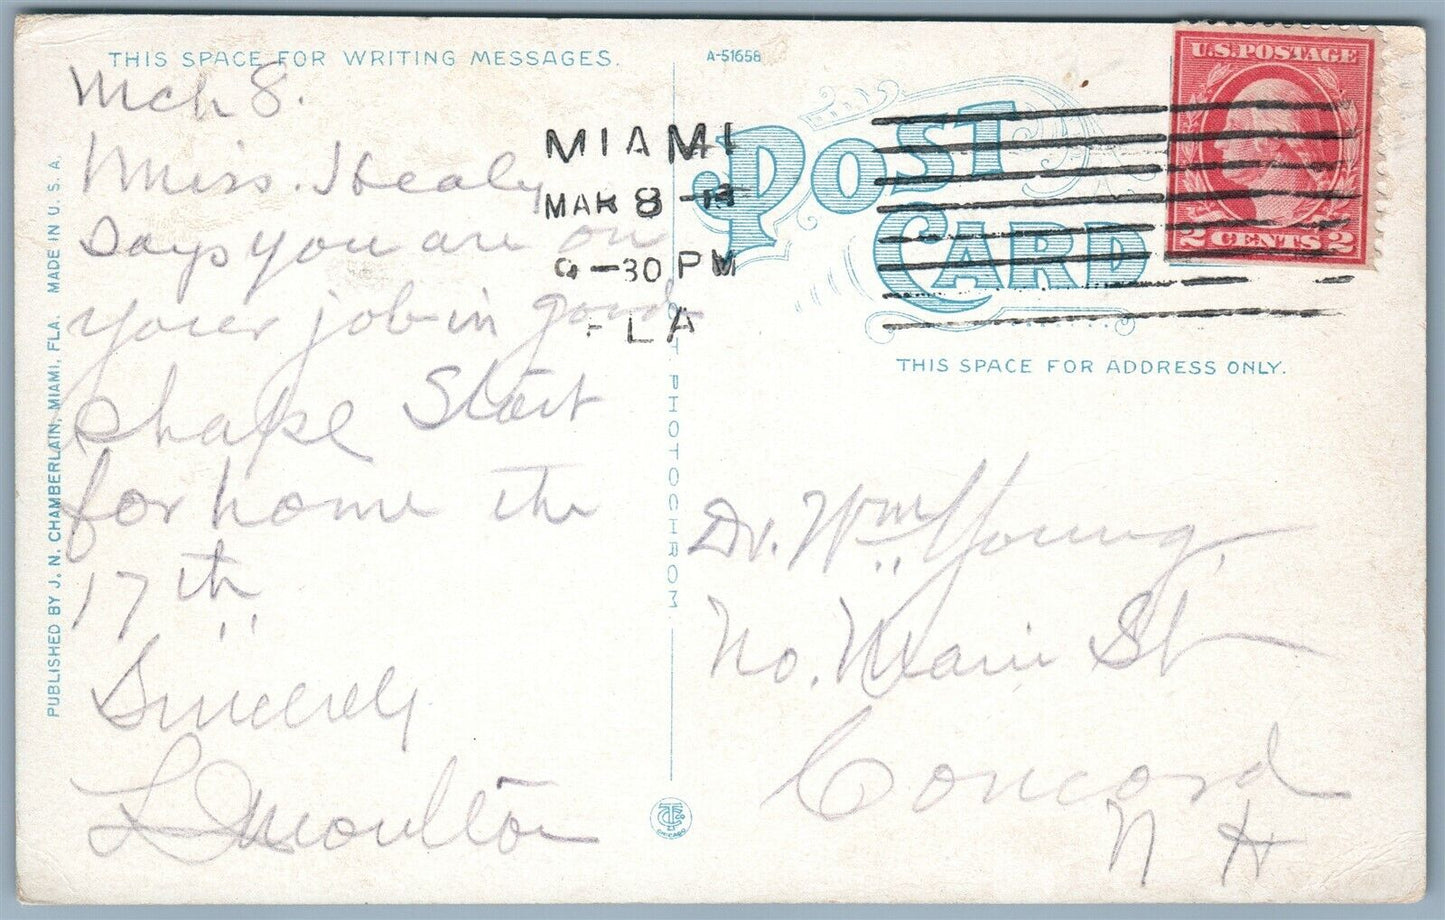 THIS SPACE FOR WRITING MESSAGES.
Mch 8.
Miss. Healy
Says you are on
your job in good
shape Start
for home the
17th
Sincerely
L Moulton
PUBLISHED BY J. N. CHAMBERLAIN, MIAMI, FLA. MADE IN U. S. A.
A-51658
POST CARD
MIAMI
MAR 8
9-30 PM
FLA
U.S. POSTAGE
2 CENTS 2
THIS SPACE FOR ADDRESS ONLY.
PHOTOCHROM
Dr. Wm Young
No. Main St
Concord
N H
CHICAGO